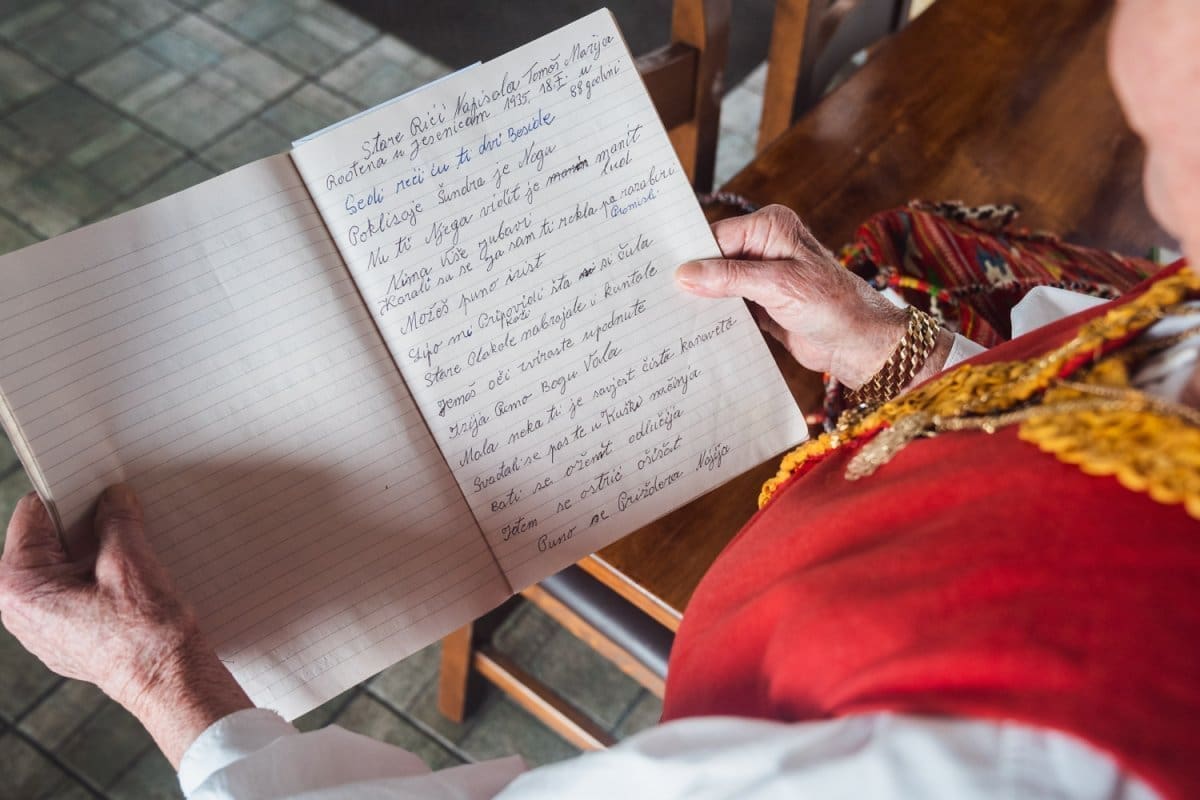 Stare Riči Napisala Tomoš Marija
Rođena u Jesenicam 1935, 18.I. u
88 godini
Sedli reći ću ti dvi Beside
Poklisaje Šundra je Noga
Nu ti Njega vidit je manit
lud
Nima više Jubavi
Karali su se Ja sam ti rekla pa razabiri
Promisli
Možeš puno izist
Lijo mi Pripovidi šta si čula
kaži
Stare Olakole nabrajale u kantale
Jemaš oči izdraste upodnute
Izija Puno Bogu Vala
Mala neka ti je savjest čista karaveta
Svađali se pas te u Kuški mrčnja
Bati se oženit odlučija
Jićem se ostrić ošišat
Puno se Priždera Najija